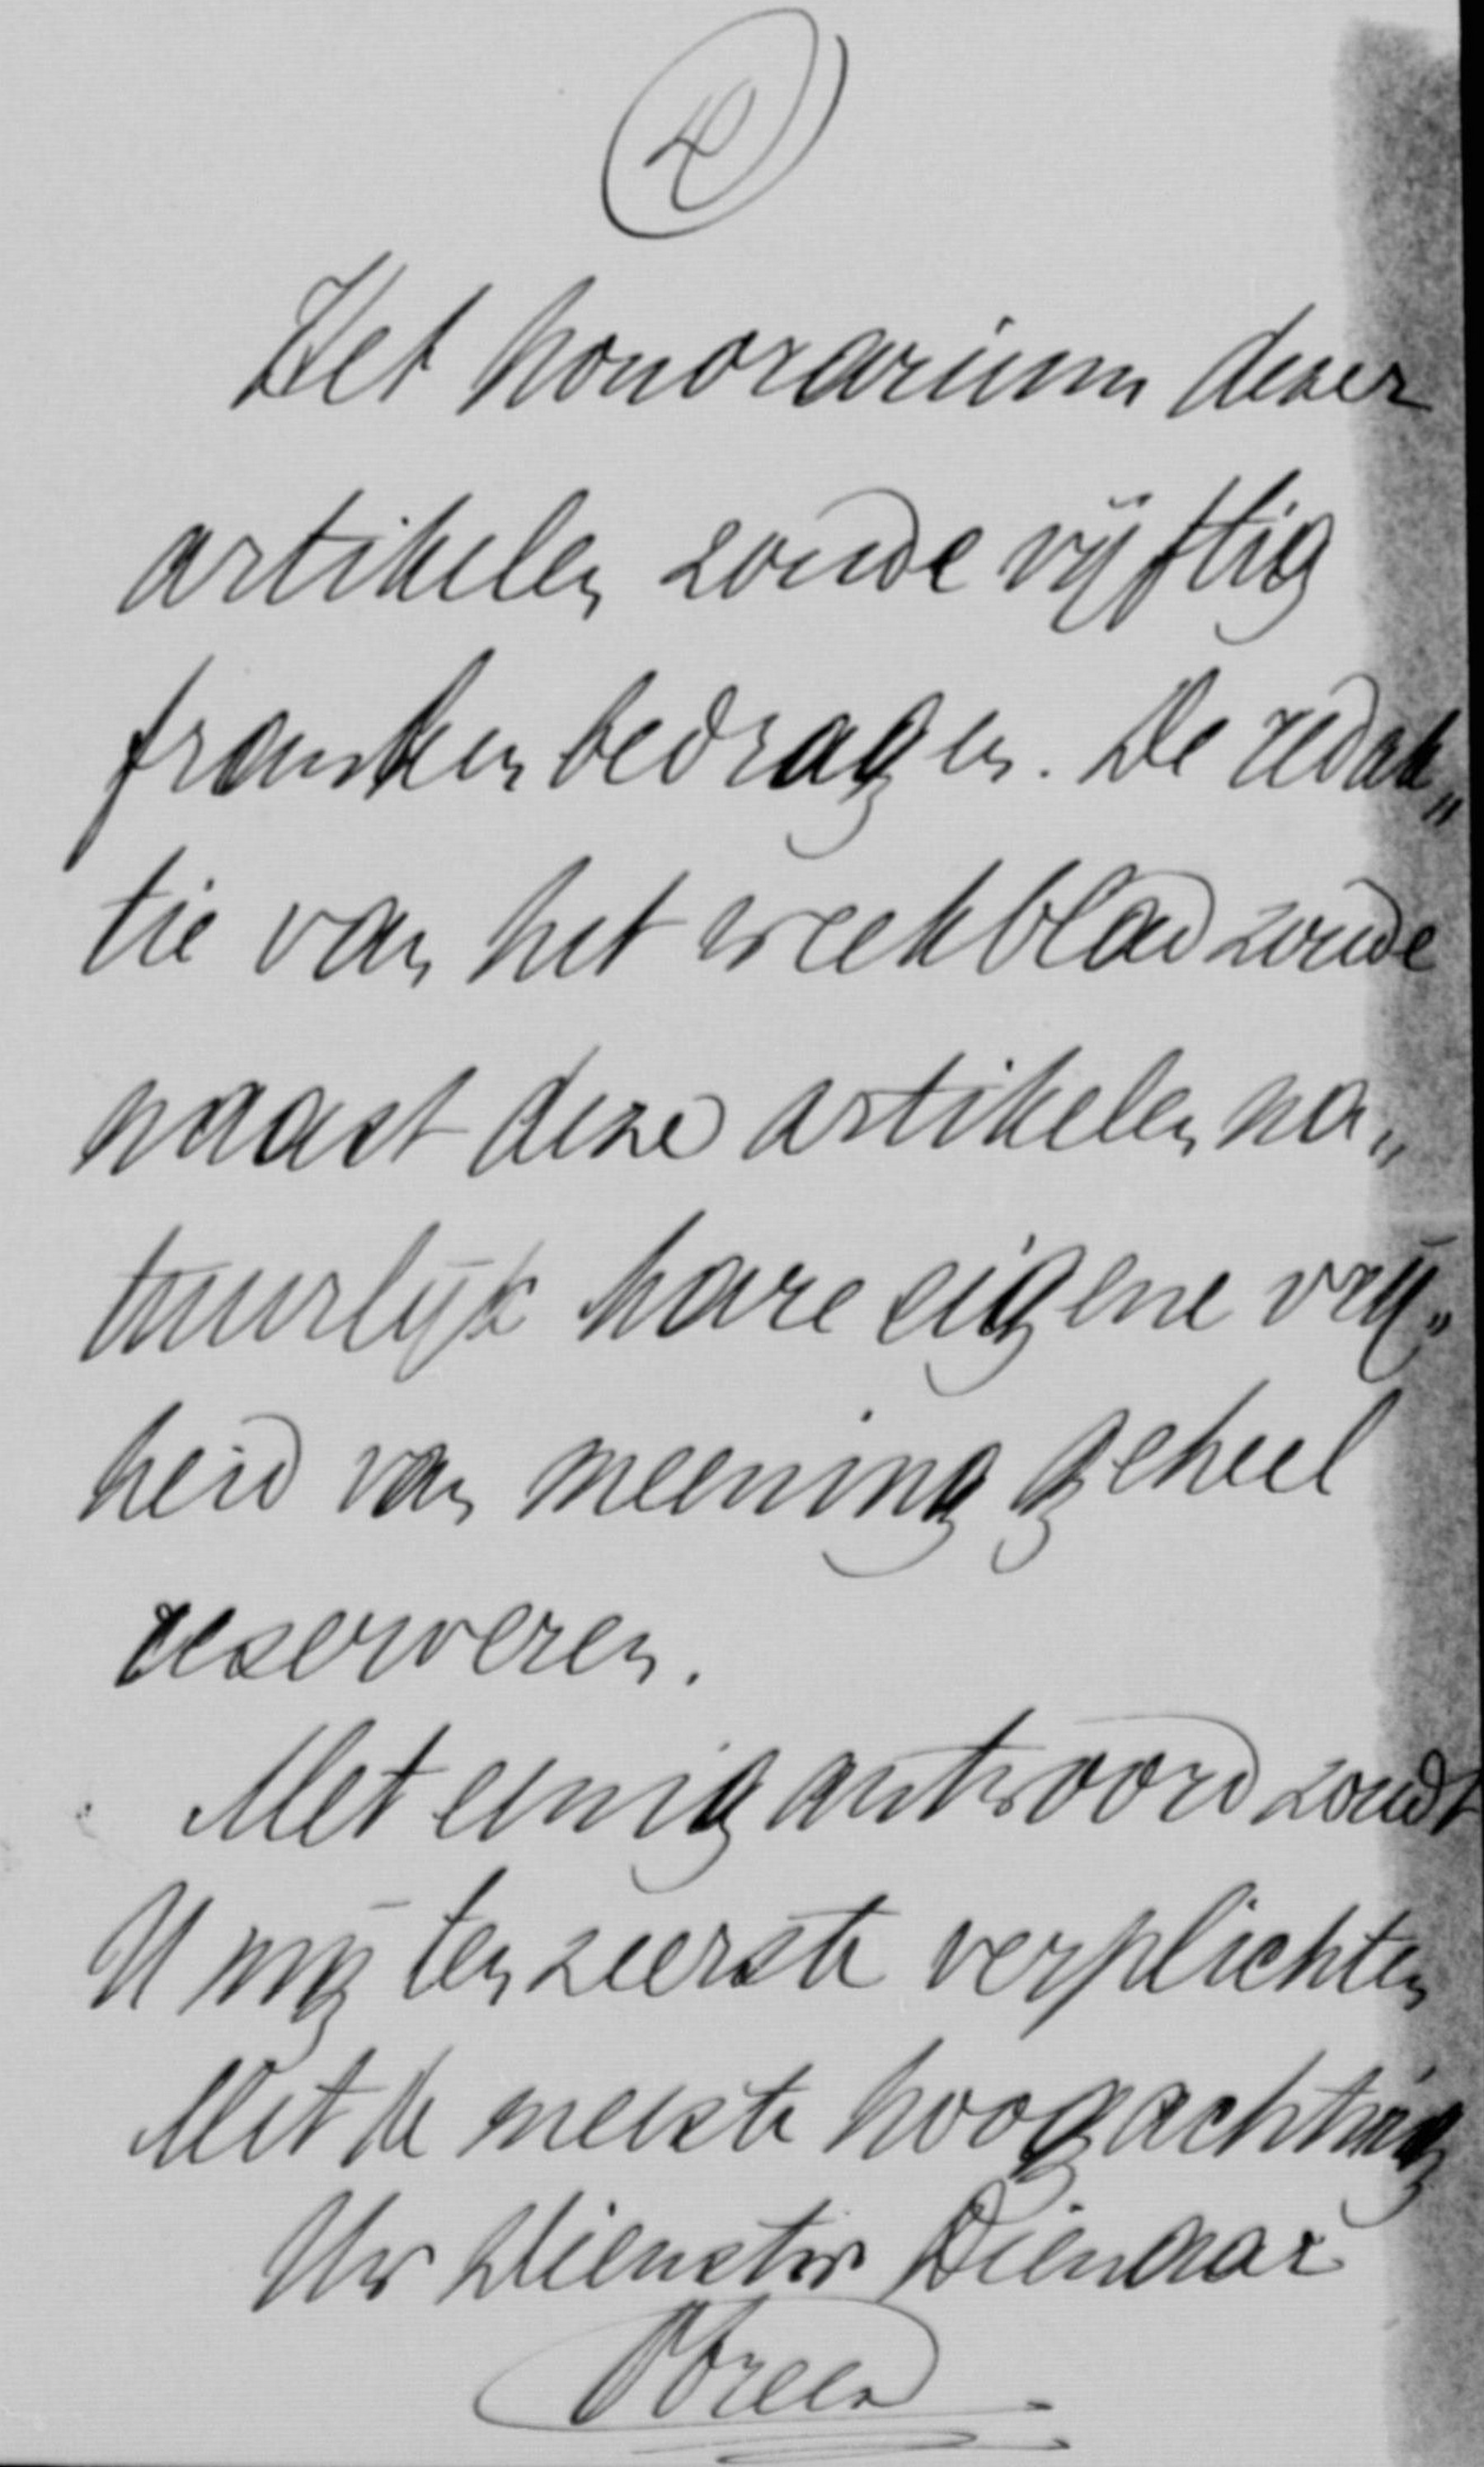 4
Het honorarium dezer
artikelen zoude vijftig
franken bedragen. De redak„
tie van het weekblad zoude
naast deze artikelen na„
tuurlijk hare eigene vrij„
heid van meening geheel
reserveren.
Met eenig antwoord zoudt
U mij ten zeerste verplichten
Met de meeste hoogachting
Uw Dienstw Dienaar